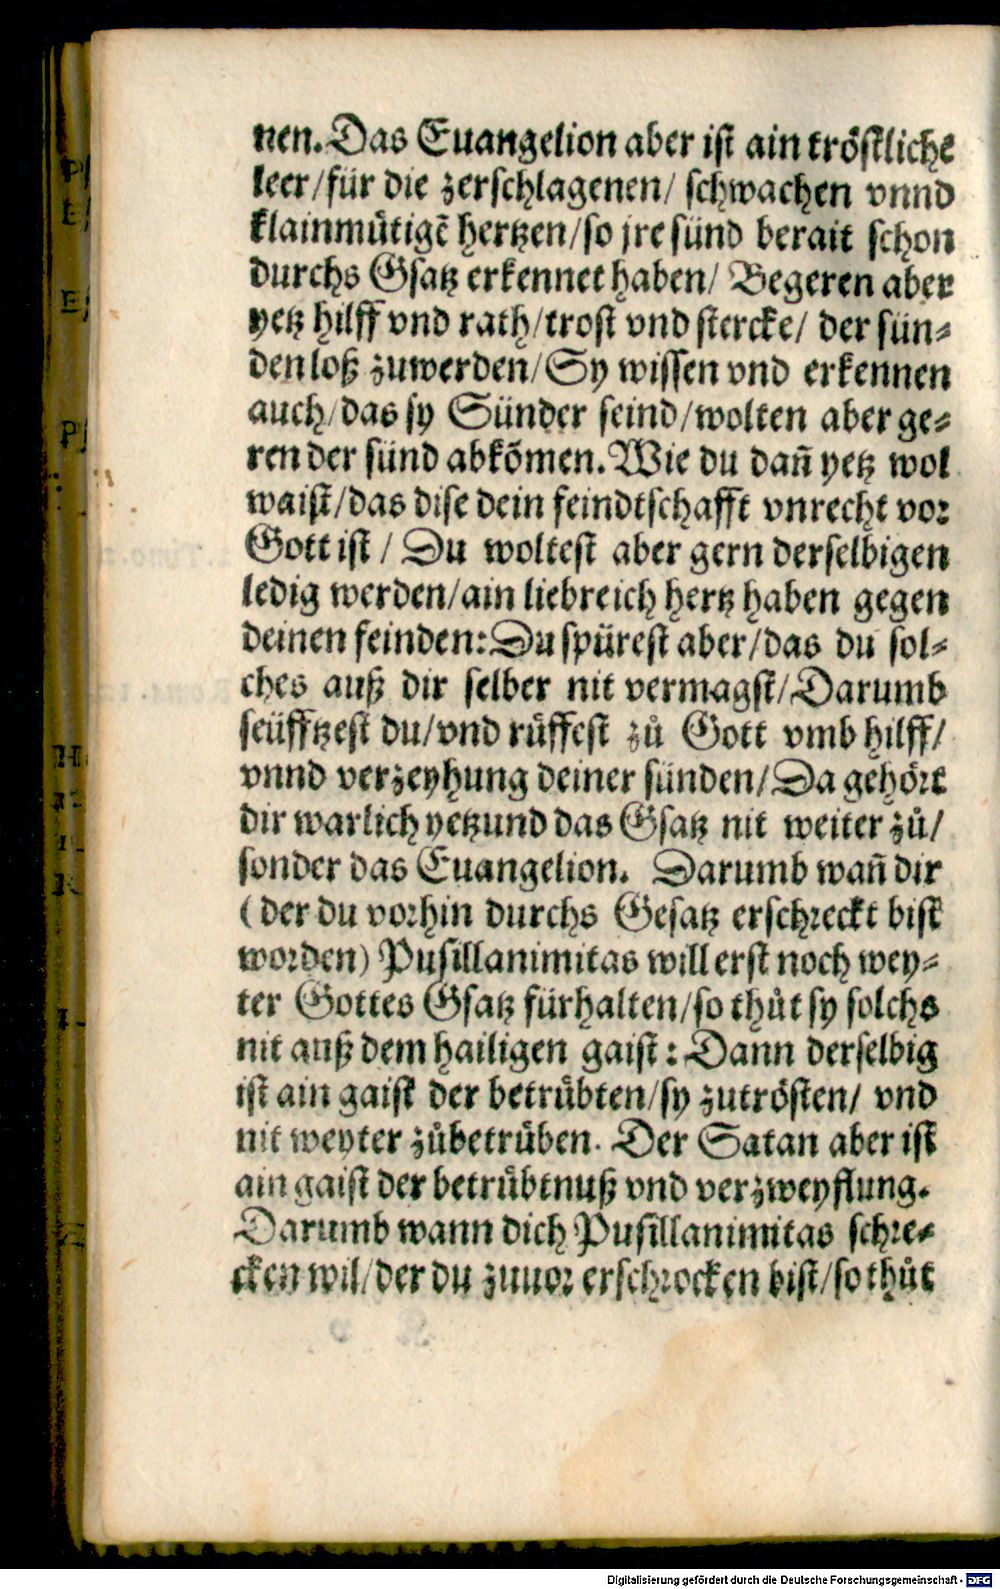 nen. Das Euangelion aber ist ain tröstliche
leer/für die zerschlagenen/ schwachen vnnd
klainmütigẽ hertzen/so jre sünd berait schon
durchs Gsatz erkennet haben/ Begeren aber
yetz hilff vnd rath/trost vnd stercke/ der sün-
den loß zuwerden/Sy wissen vnd erkennen
auch/das sy Sünder seind/wolten aber ge-
ren der sünd abkõmen. Wie du dañ yetz wol
waist/das dise dein feindtschafft vnrecht vor
Gott ist / Du woltest aber gern derselbigen
ledig werden/ain liebreich hertz haben gegen
deinen feinden: Du spürest aber/das du sol-
ches auß dir selber nit vermagst/Darumb
seüfftzest du/vnd rüffest zů Gott vmb hilff/
vnnd verzeyhung deiner sünden/Da gehört
dir warlich yetzund das Gsatz nit weiter zů/
sonder das Euangelion. Darumb wañ dir
(der du vorhin durchs Gesatz erschreckt bist
worden) Pusillanimitas will erst noch wey-
ter Gottes Gsatz fürhalten/so thůt sy solchs
nit auß dem hailigen gaist: Dann derselbig
ist ain gaist der betrübten/sy zutrösten/ vnd
nit weyter zůbetrüben. Der Satan aber ist
ain gaist der betrübtnuß vnd verzweyflung.
Darumb wann dich Pusillanimitas schre-
cken wil/der du zuuor erschrocken bist/so thůt
Digitalisierung gefördert durch die Deutsche Forschungsgemeinschaft - DFG